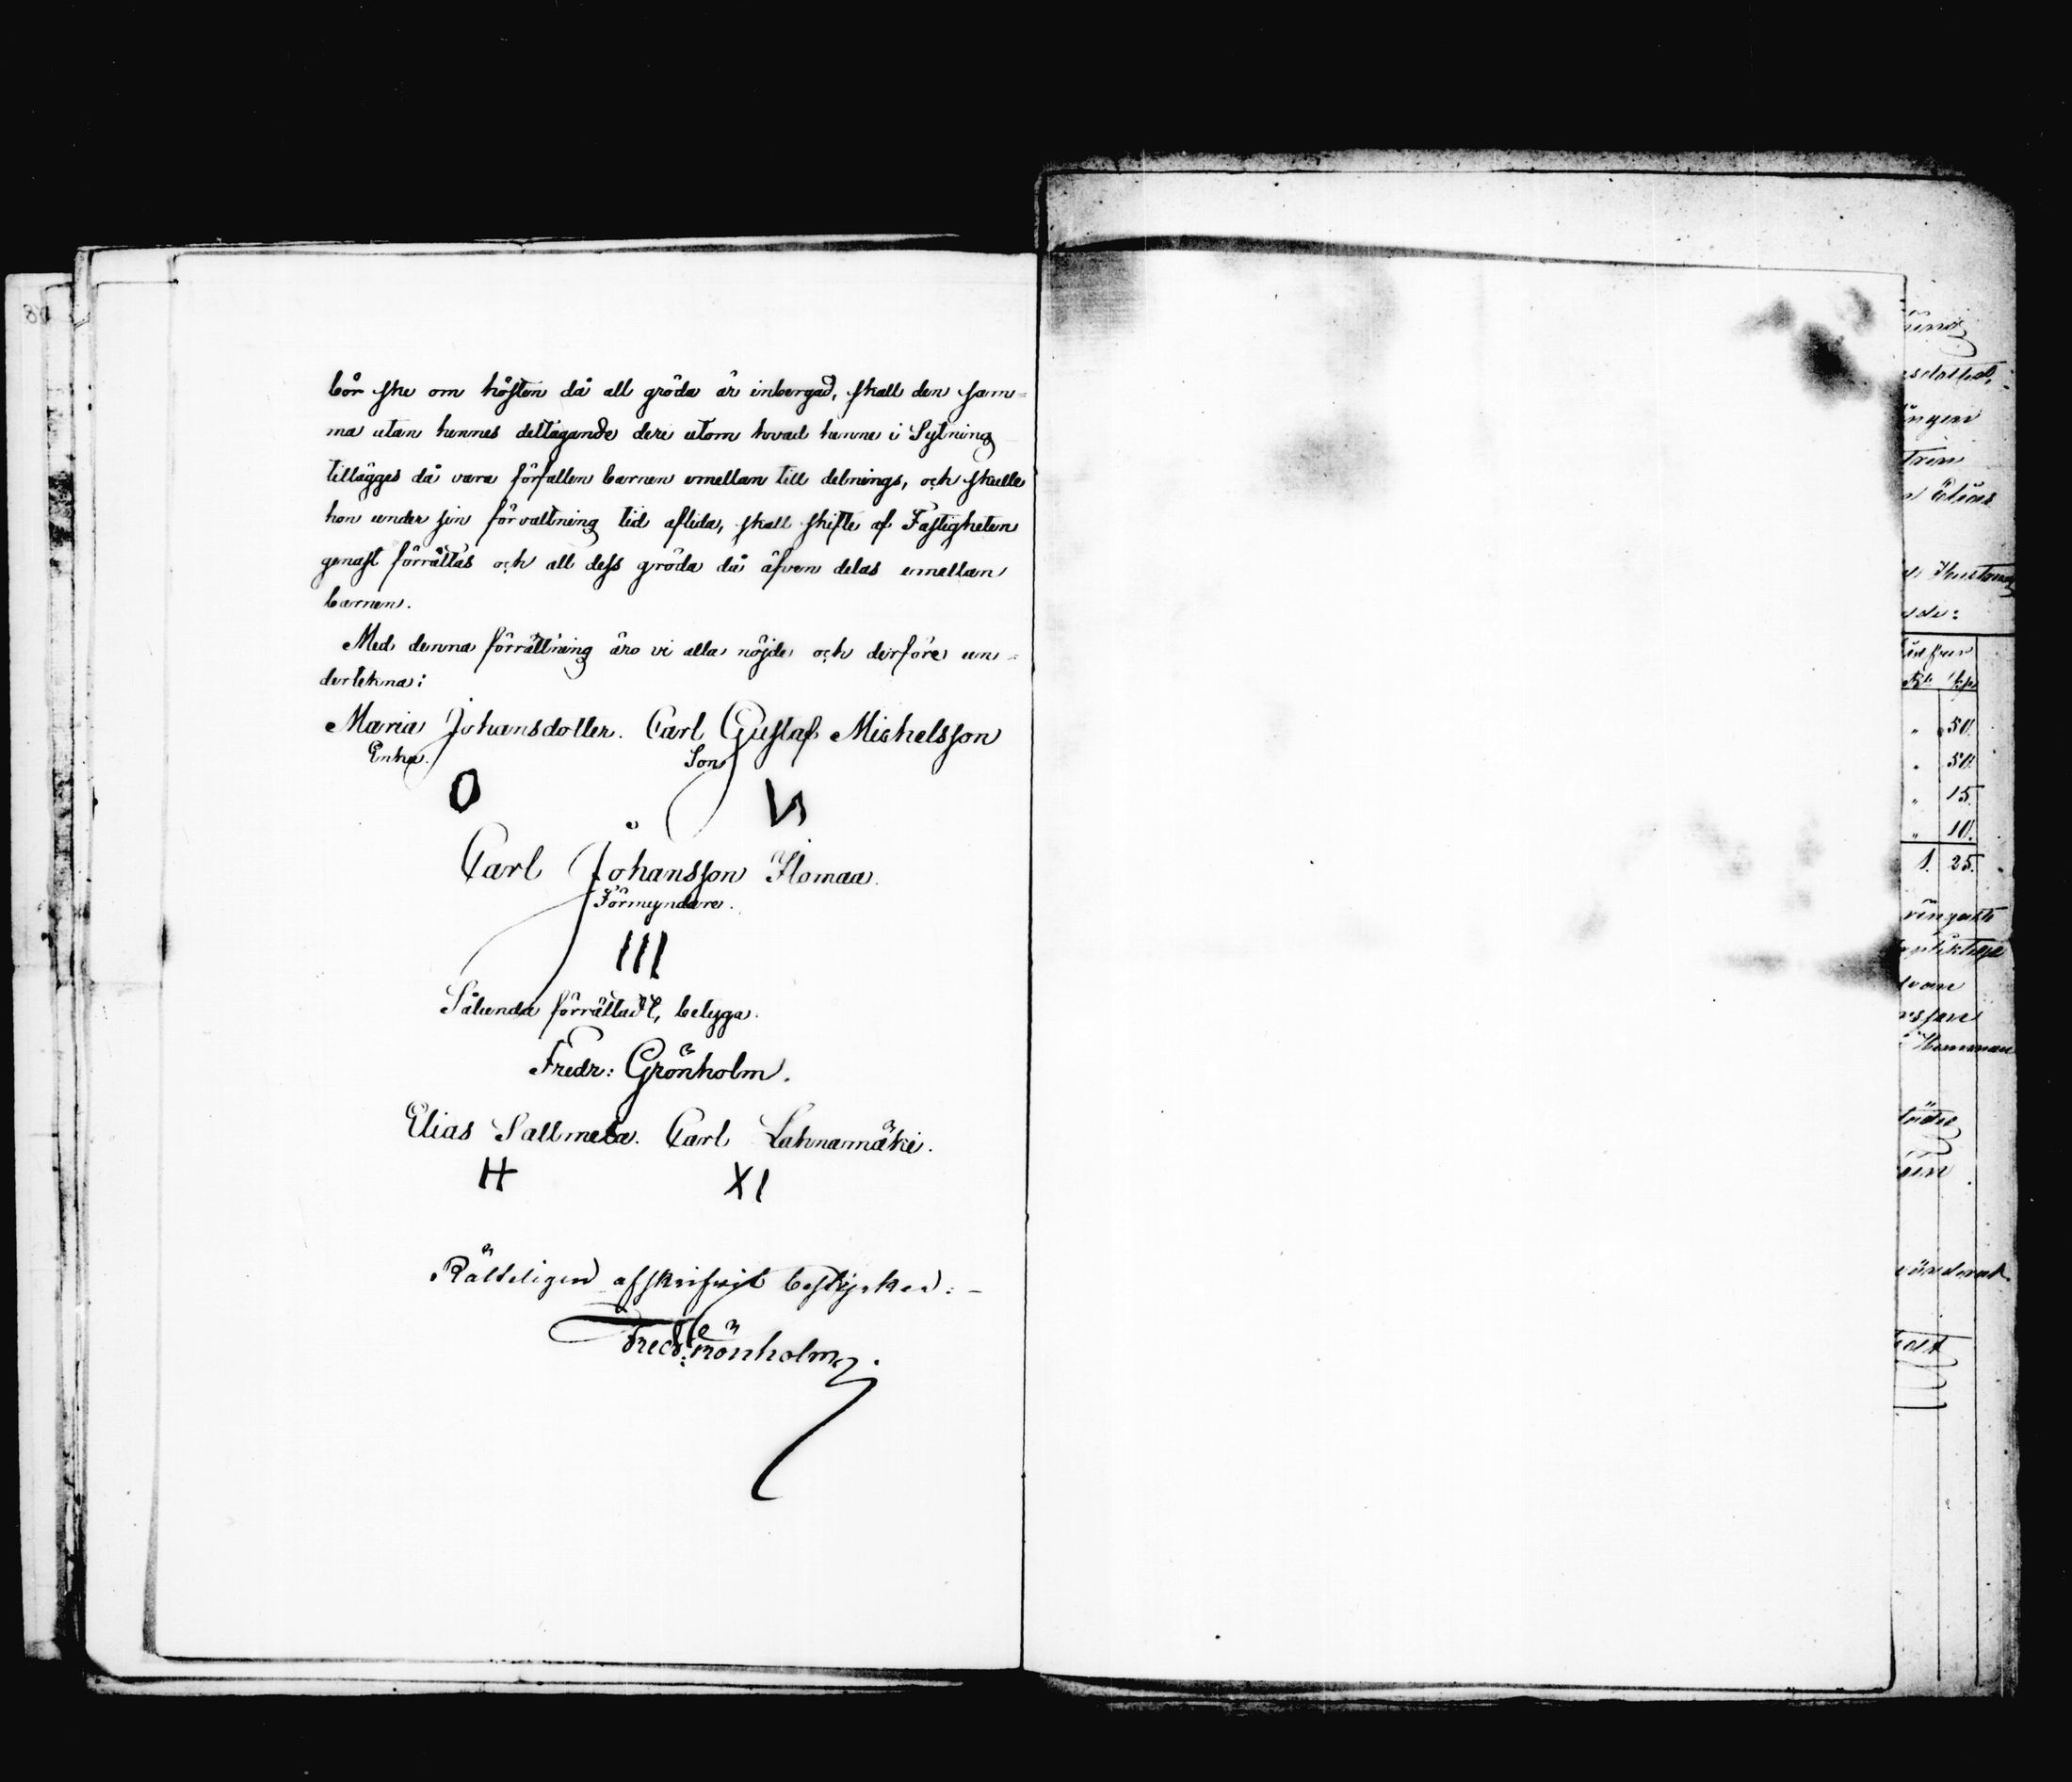 bör ske om hösten då all gröda är inbergad, skall den sam=
ma utan hennes deltagande dere utom hvad henne i Sytning
tillägges då vara förfallen barnen emellan till delnings, och skulle
hon under sin förvaltning tid aflida, skall skifte af Fastigheten
genast förrättas och all dess gröda då äfven delas emellan
barnen.
Med denna förrättning äro vi alla nöjde och derföre un=
derlekna:
Maria Johansdotter. Carl Gustaf Michelsson
Enka. Son
O VI
Carl Johansson Ilomaa.
Förmyndare.
III
Sålunda förrättadt, betyga.
Fredr: Grönholm.
Elias Sallmela. Carl Lahnamäki.
H XI
Rätteligen afskrifvit beskyrker: -
Fredr: Grönholm.
ängen
Elias
50.
50.
15.
10.
1. 25.